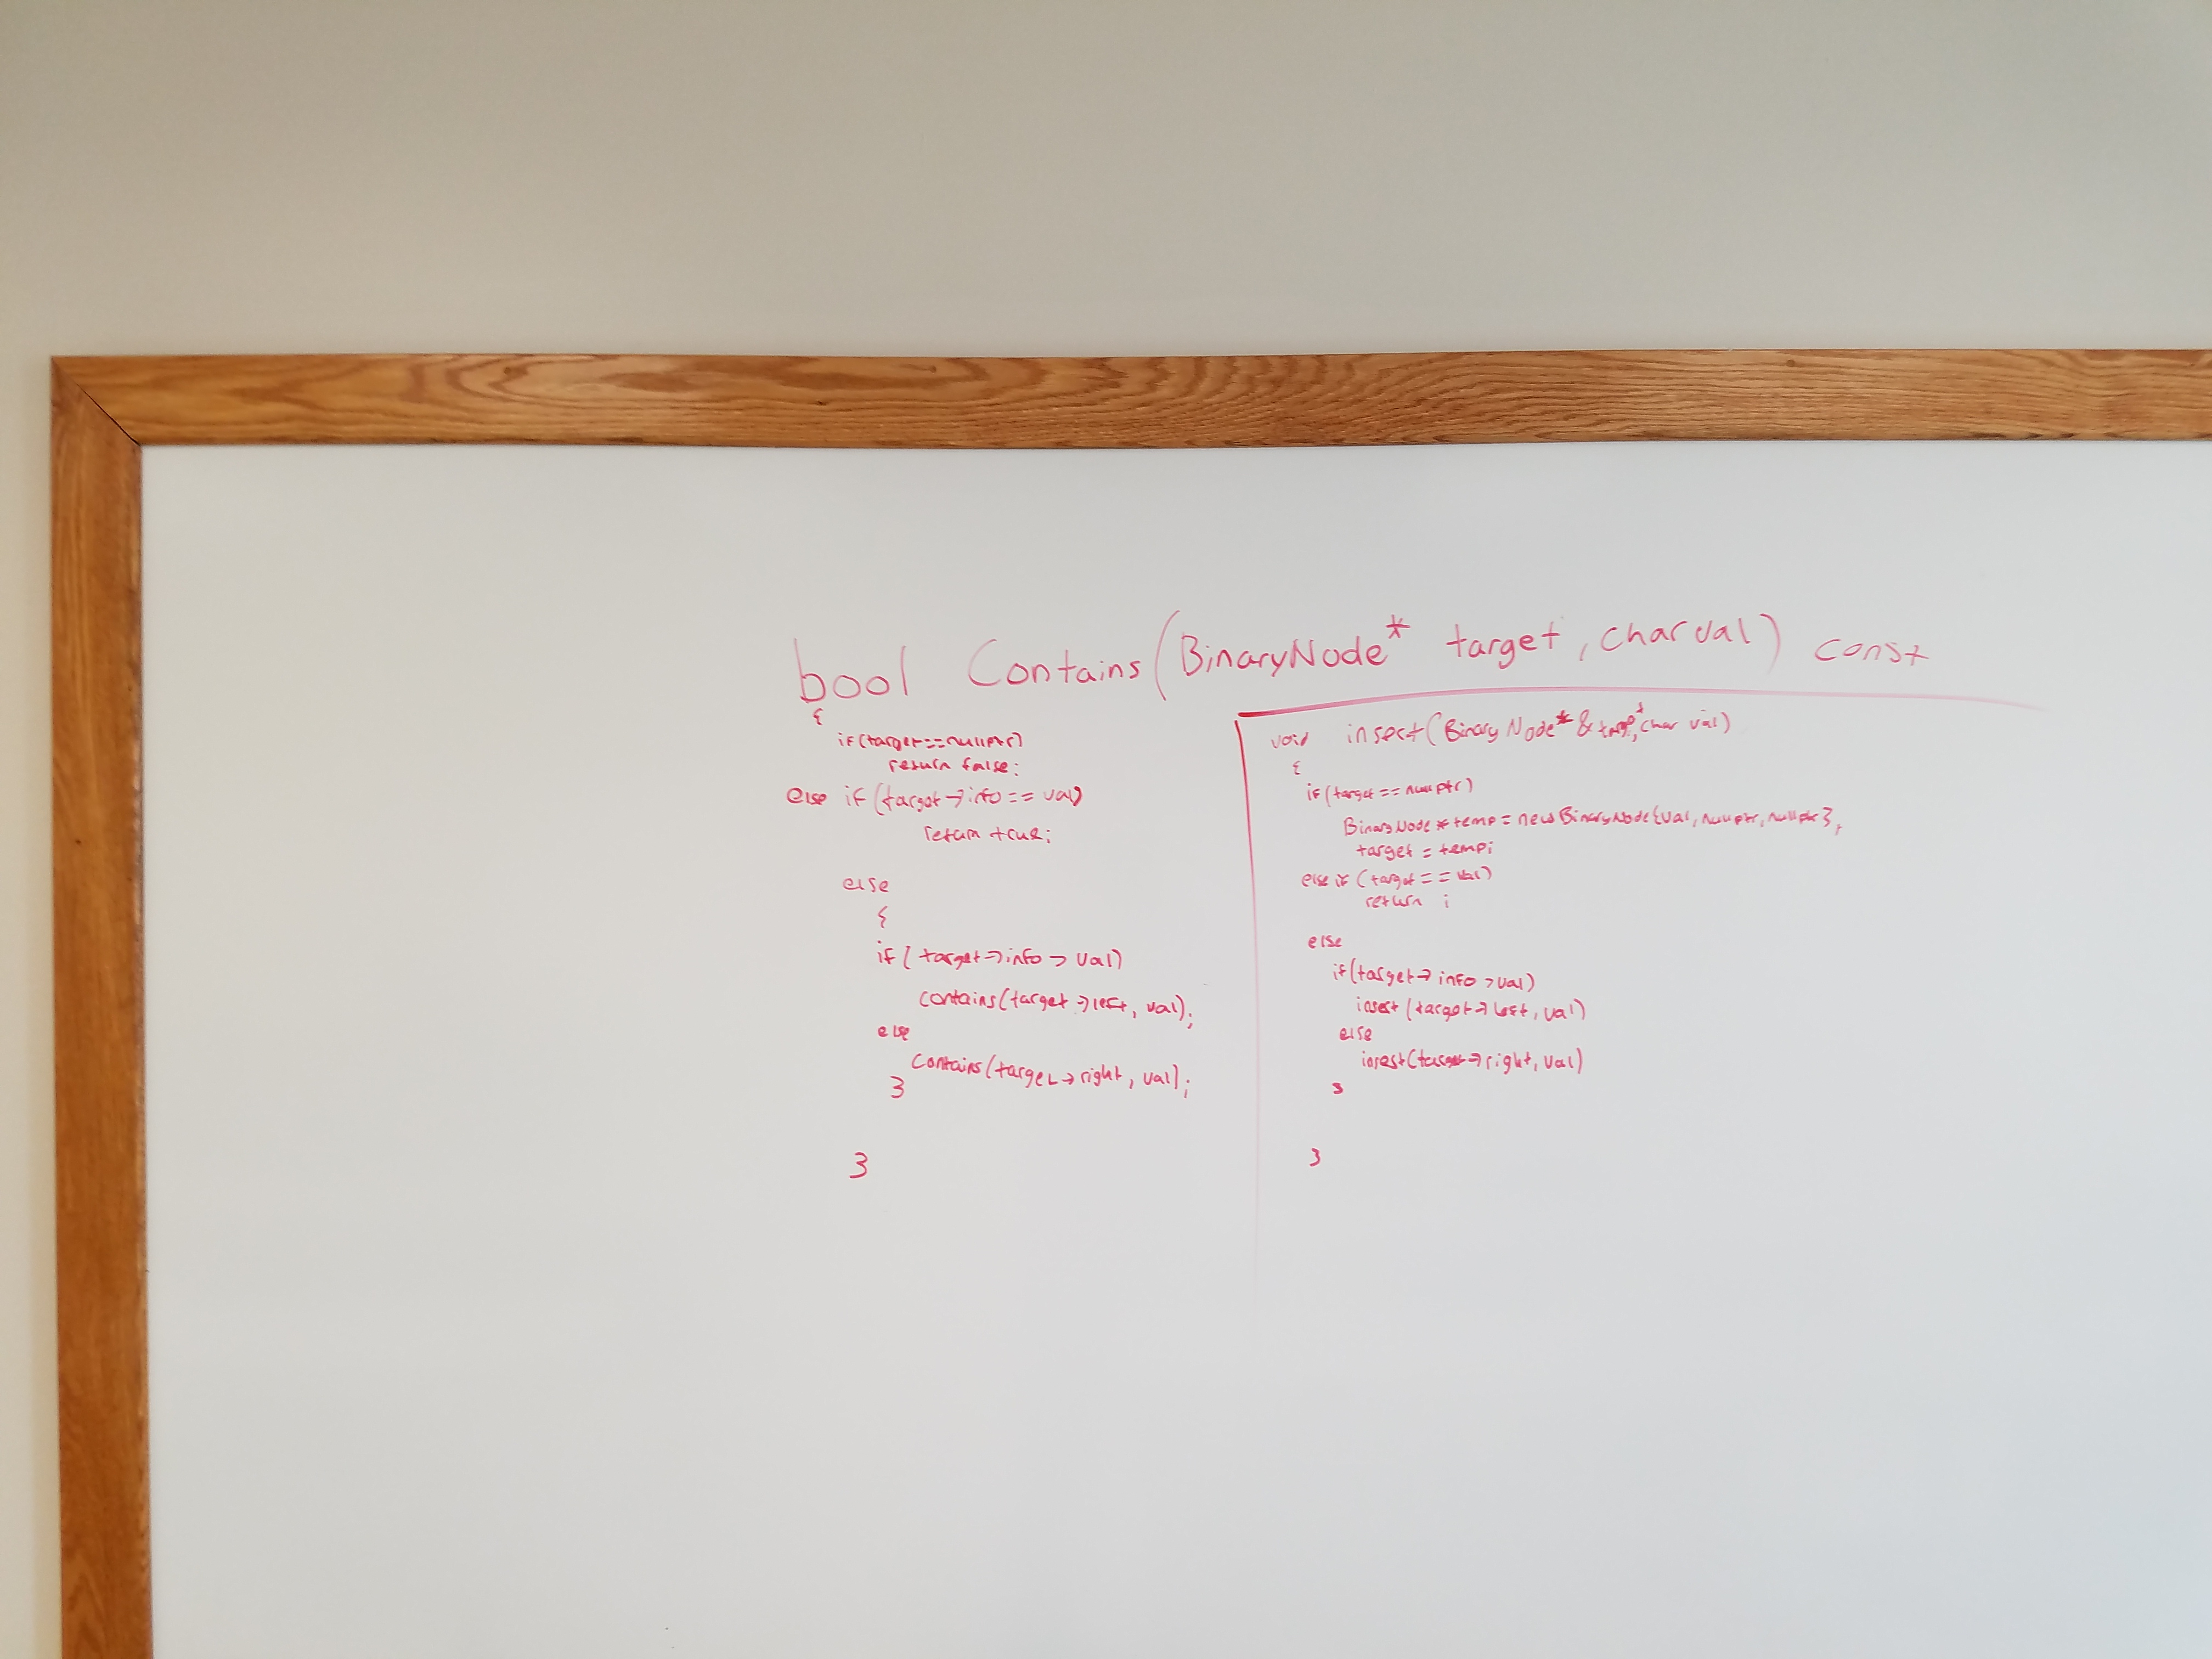 bool Contains(BinaryNode* target, char val) const
{
if(target==nullptr)
return false;
else if(target->info == val)
return true;
else
{
if( target->info > val)
contains(target->left, val);
else
contains(target->right, val);
}
}
void insert(BinaryNode* & target, char val)
{
if(target==nullptr)
BinaryNode*temp=new BinaryNode{val, nullptr, nullptr};
target = temp;
else if (target == val)
return ;
else
if(target->info >val)
insert(target->left, val)
else
insert(target->right, val)
}
}